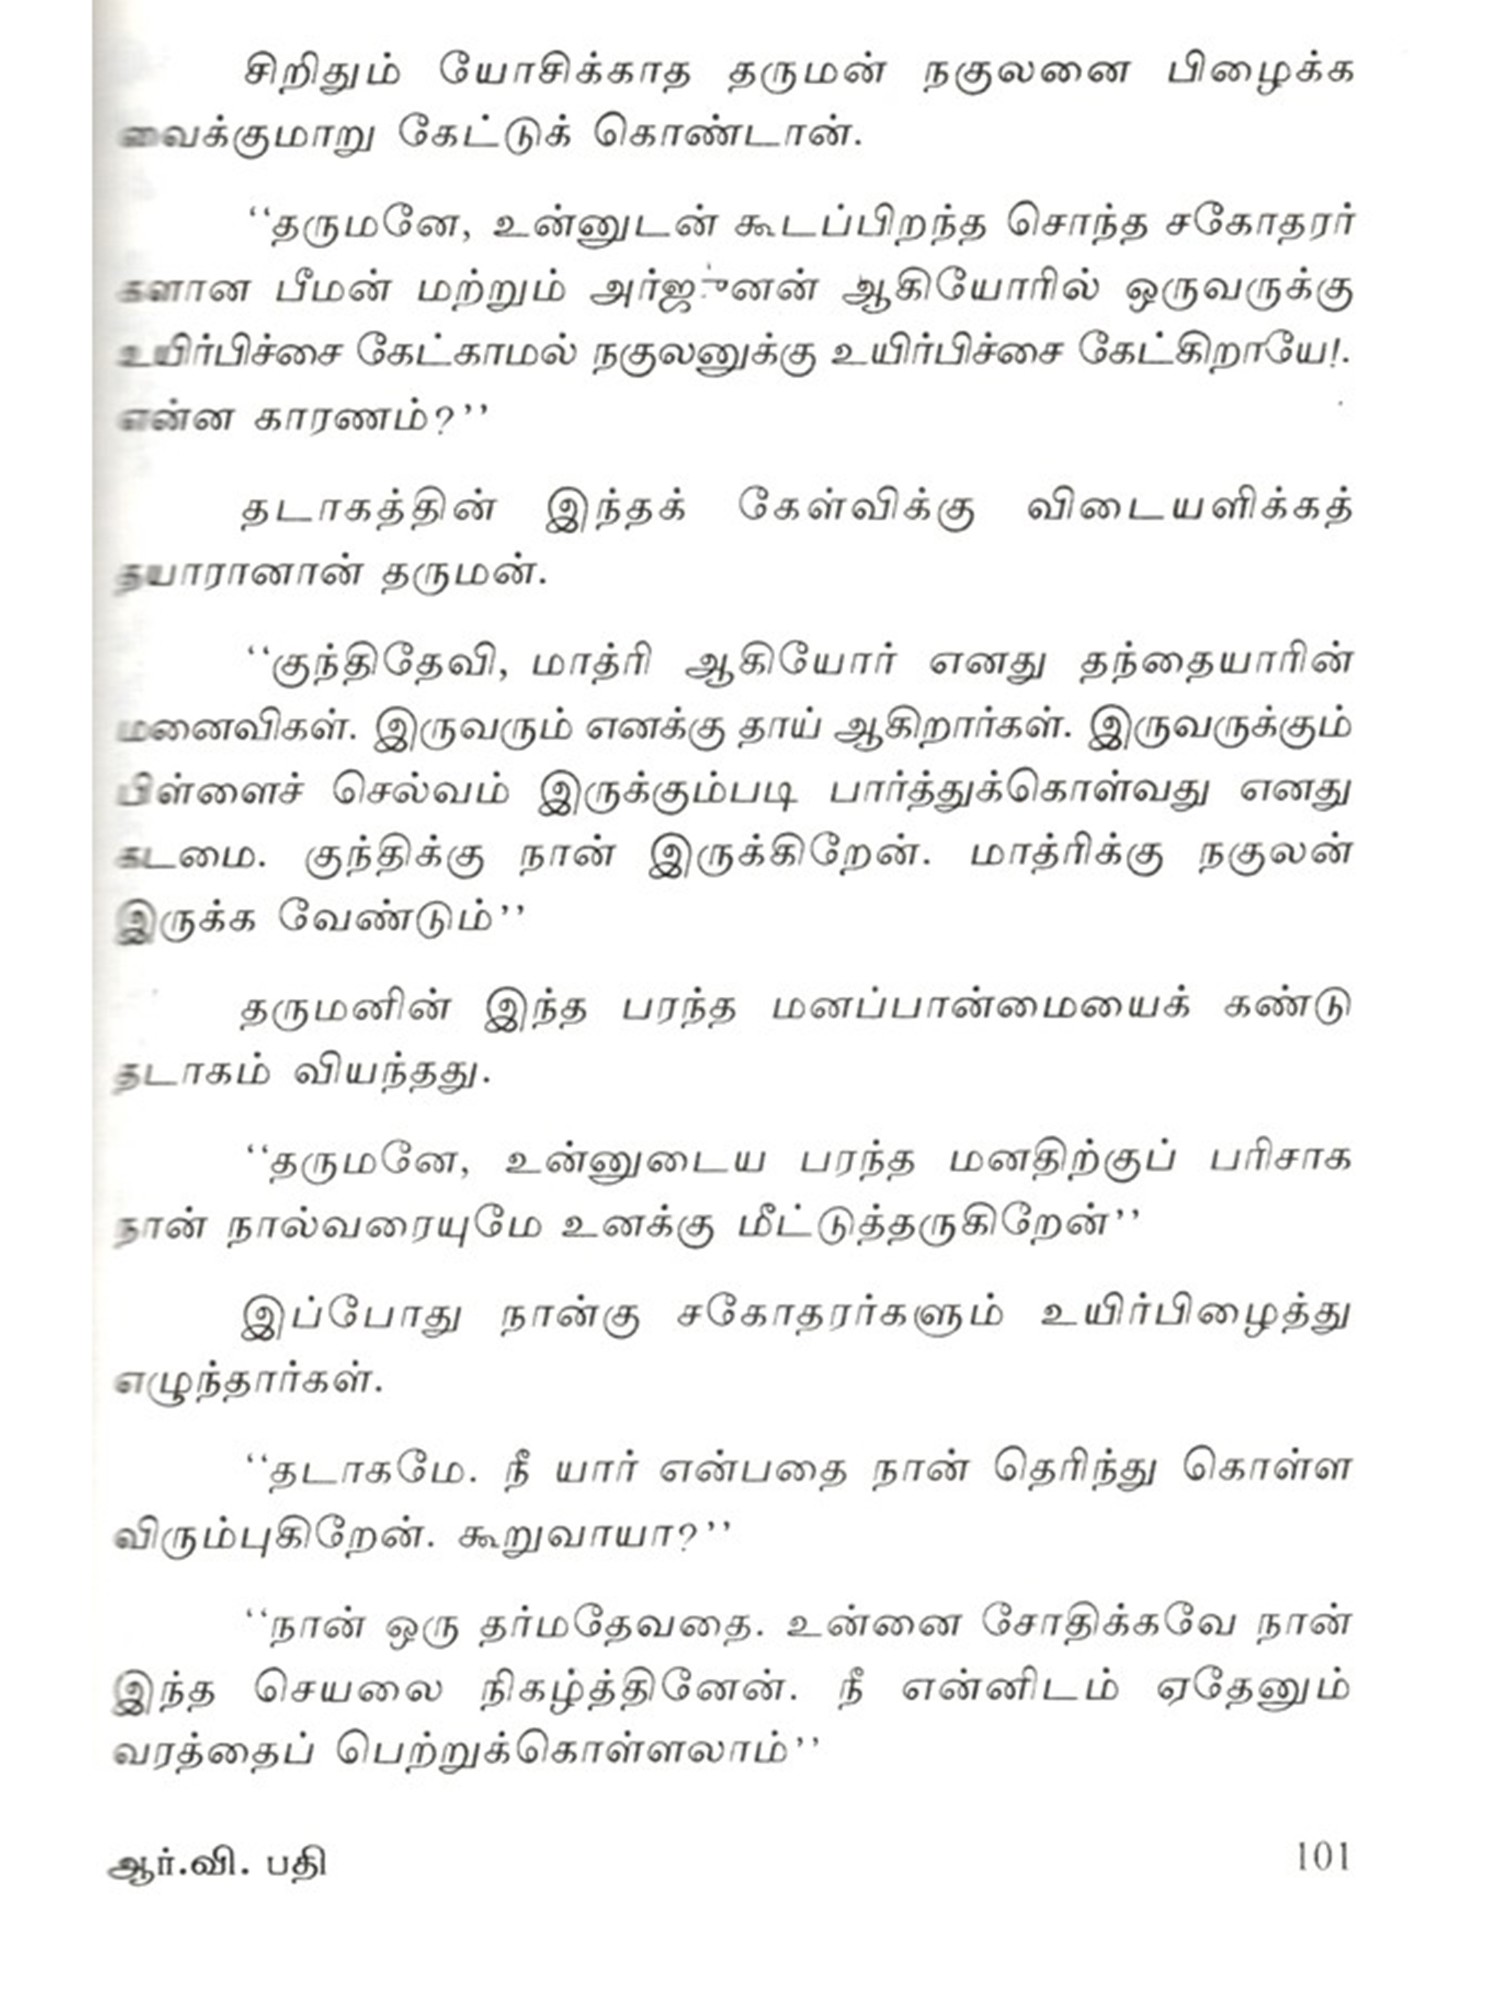 சிறிதும் யோசிக்காத தருமன் நகுலனை பிழைக்க
வைக்குமாறு கேட்டுக் கொண்டான்.
‘‘தருமனே, உன்னுடன் கூடப்பிறந்த சொந்த சகோதரர்
களான பீமன் மற்றும் அர்ஜுனன் ஆகியோரில் ஒருவருக்கு
உயிர்பிச்சை கேட்காமல் நகுலனுக்கு உயிர்பிச்சை கேட்கிறாயே!.
என்ன காரணம்?’’
தடாகத்தின் இந்தக் கேள்விக்கு விடையளிக்கத்
தயாரானான் தருமன்.
‘‘குந்திதேவி, மாத்ரி ஆகியோர் எனது தந்தையாரின்
மனைவிகள். இருவரும் எனக்கு தாய் ஆகிறார்கள். இருவருக்கும்
பிள்ளைச் செல்வம் இருக்கும்படி பார்த்துக்கொள்வது எனது
கடமை. குந்திக்கு நான் இருக்கிறேன். மாத்ரிக்கு நகுலன்
இருக்க வேண்டும்’’
தருமனின் இந்த பரந்த மனப்பான்மையைக் கண்டு
தடாகம் வியந்தது.
‘‘தருமனே, உன்னுடைய பரந்த மனதிற்குப் பரிசாக
நான் நால்வரையுமே உனக்கு மீட்டுத்தருகிறேன்’’
இப்போது நான்கு சகோதரர்களும் உயிர்பிழைத்து
எழுந்தார்கள்.
‘‘தடாகமே. நீ யார் என்பதை நான் தெரிந்து கொள்ள
விரும்புகிறேன். கூறுவாயா?’’
‘‘நான் ஒரு தர்மதேவதை. உன்னை சோதிக்கவே நான்
இந்த செயலை நிகழ்த்தினேன். நீ என்னிடம் ஏதேனும்
வரத்தைப் பெற்றுக்கொள்ளலாம்’’
ஆர்.வி. பதி 101